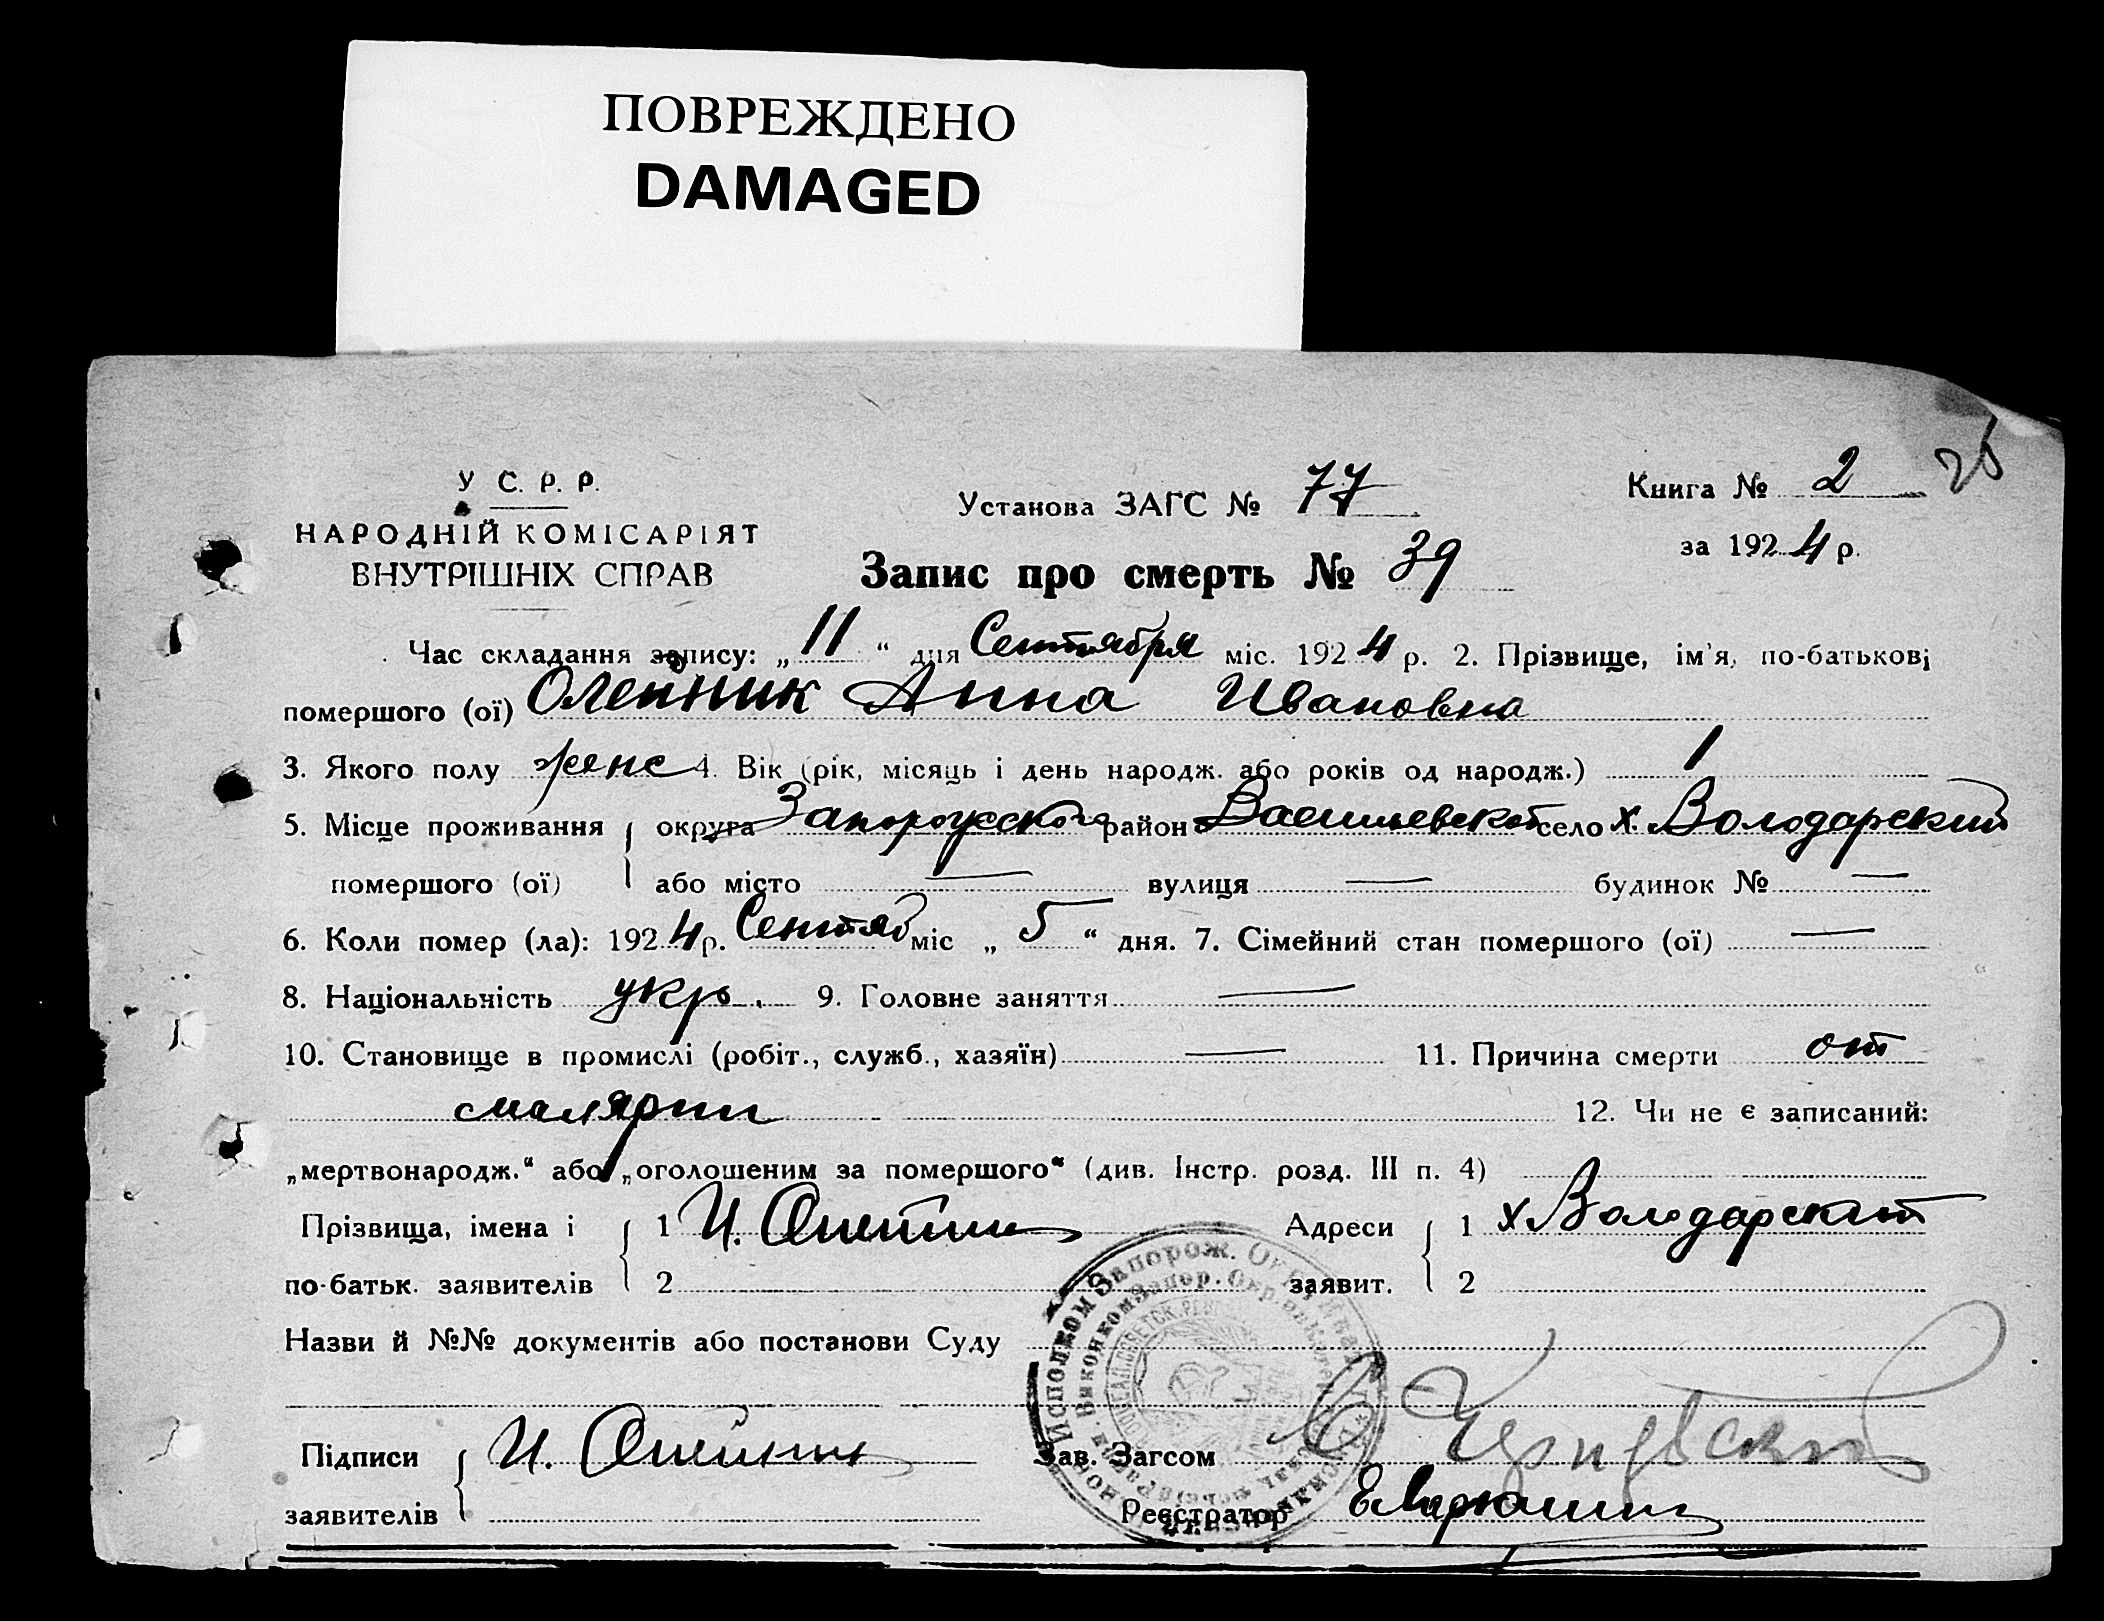 ПОВРЕЖДЕНО
DAMAGED
26
У С. Р. Р.
НАРОДНІЙ КОМІСАРІЯТ
ВНУТРІШНІХ СПРАВ
Установа ЗАГС № 77
Книга № 2
за 1924 р.
Запис про смерть № 39
Час складання запису: „11“ дня Сентября міс. 1924 р. 2. Прізвище, ім'я, по-батькові
помершого (ої) Олейник Анна Ивановна
3. Якого полу женс 4. Вік (рік, місяць і день народж. або років од народж.) 1
5. Місце проживання округа Запорожского район Васильевской село х. Володарский
помершого (ої) або місто — вулиця — будинок № —
6. Коли помер (ла): 1924 р. Сентяб міс „5“ дня. 7. Сімейний стан помершого (ої) —
8. Національність укр. 9. Головне заняття —
10. Становище в промислі (робіт., служб., хазяїн) — 11. Причина смерти от
малярии 12. Чи не є записаний:
„мертвонародж.“ або „оголошеним за помершого“ (див. Інстр. розд. III п. 4)
Прізвища, імена і 1 И. Олейник Адреси 1 х Володарский
по-батьк. заявителів 2 заявит. 2
Назви й №№ документів або постанови Суду
Підписи И. Олейник Зав. Загсом
заявителів Реєстратор